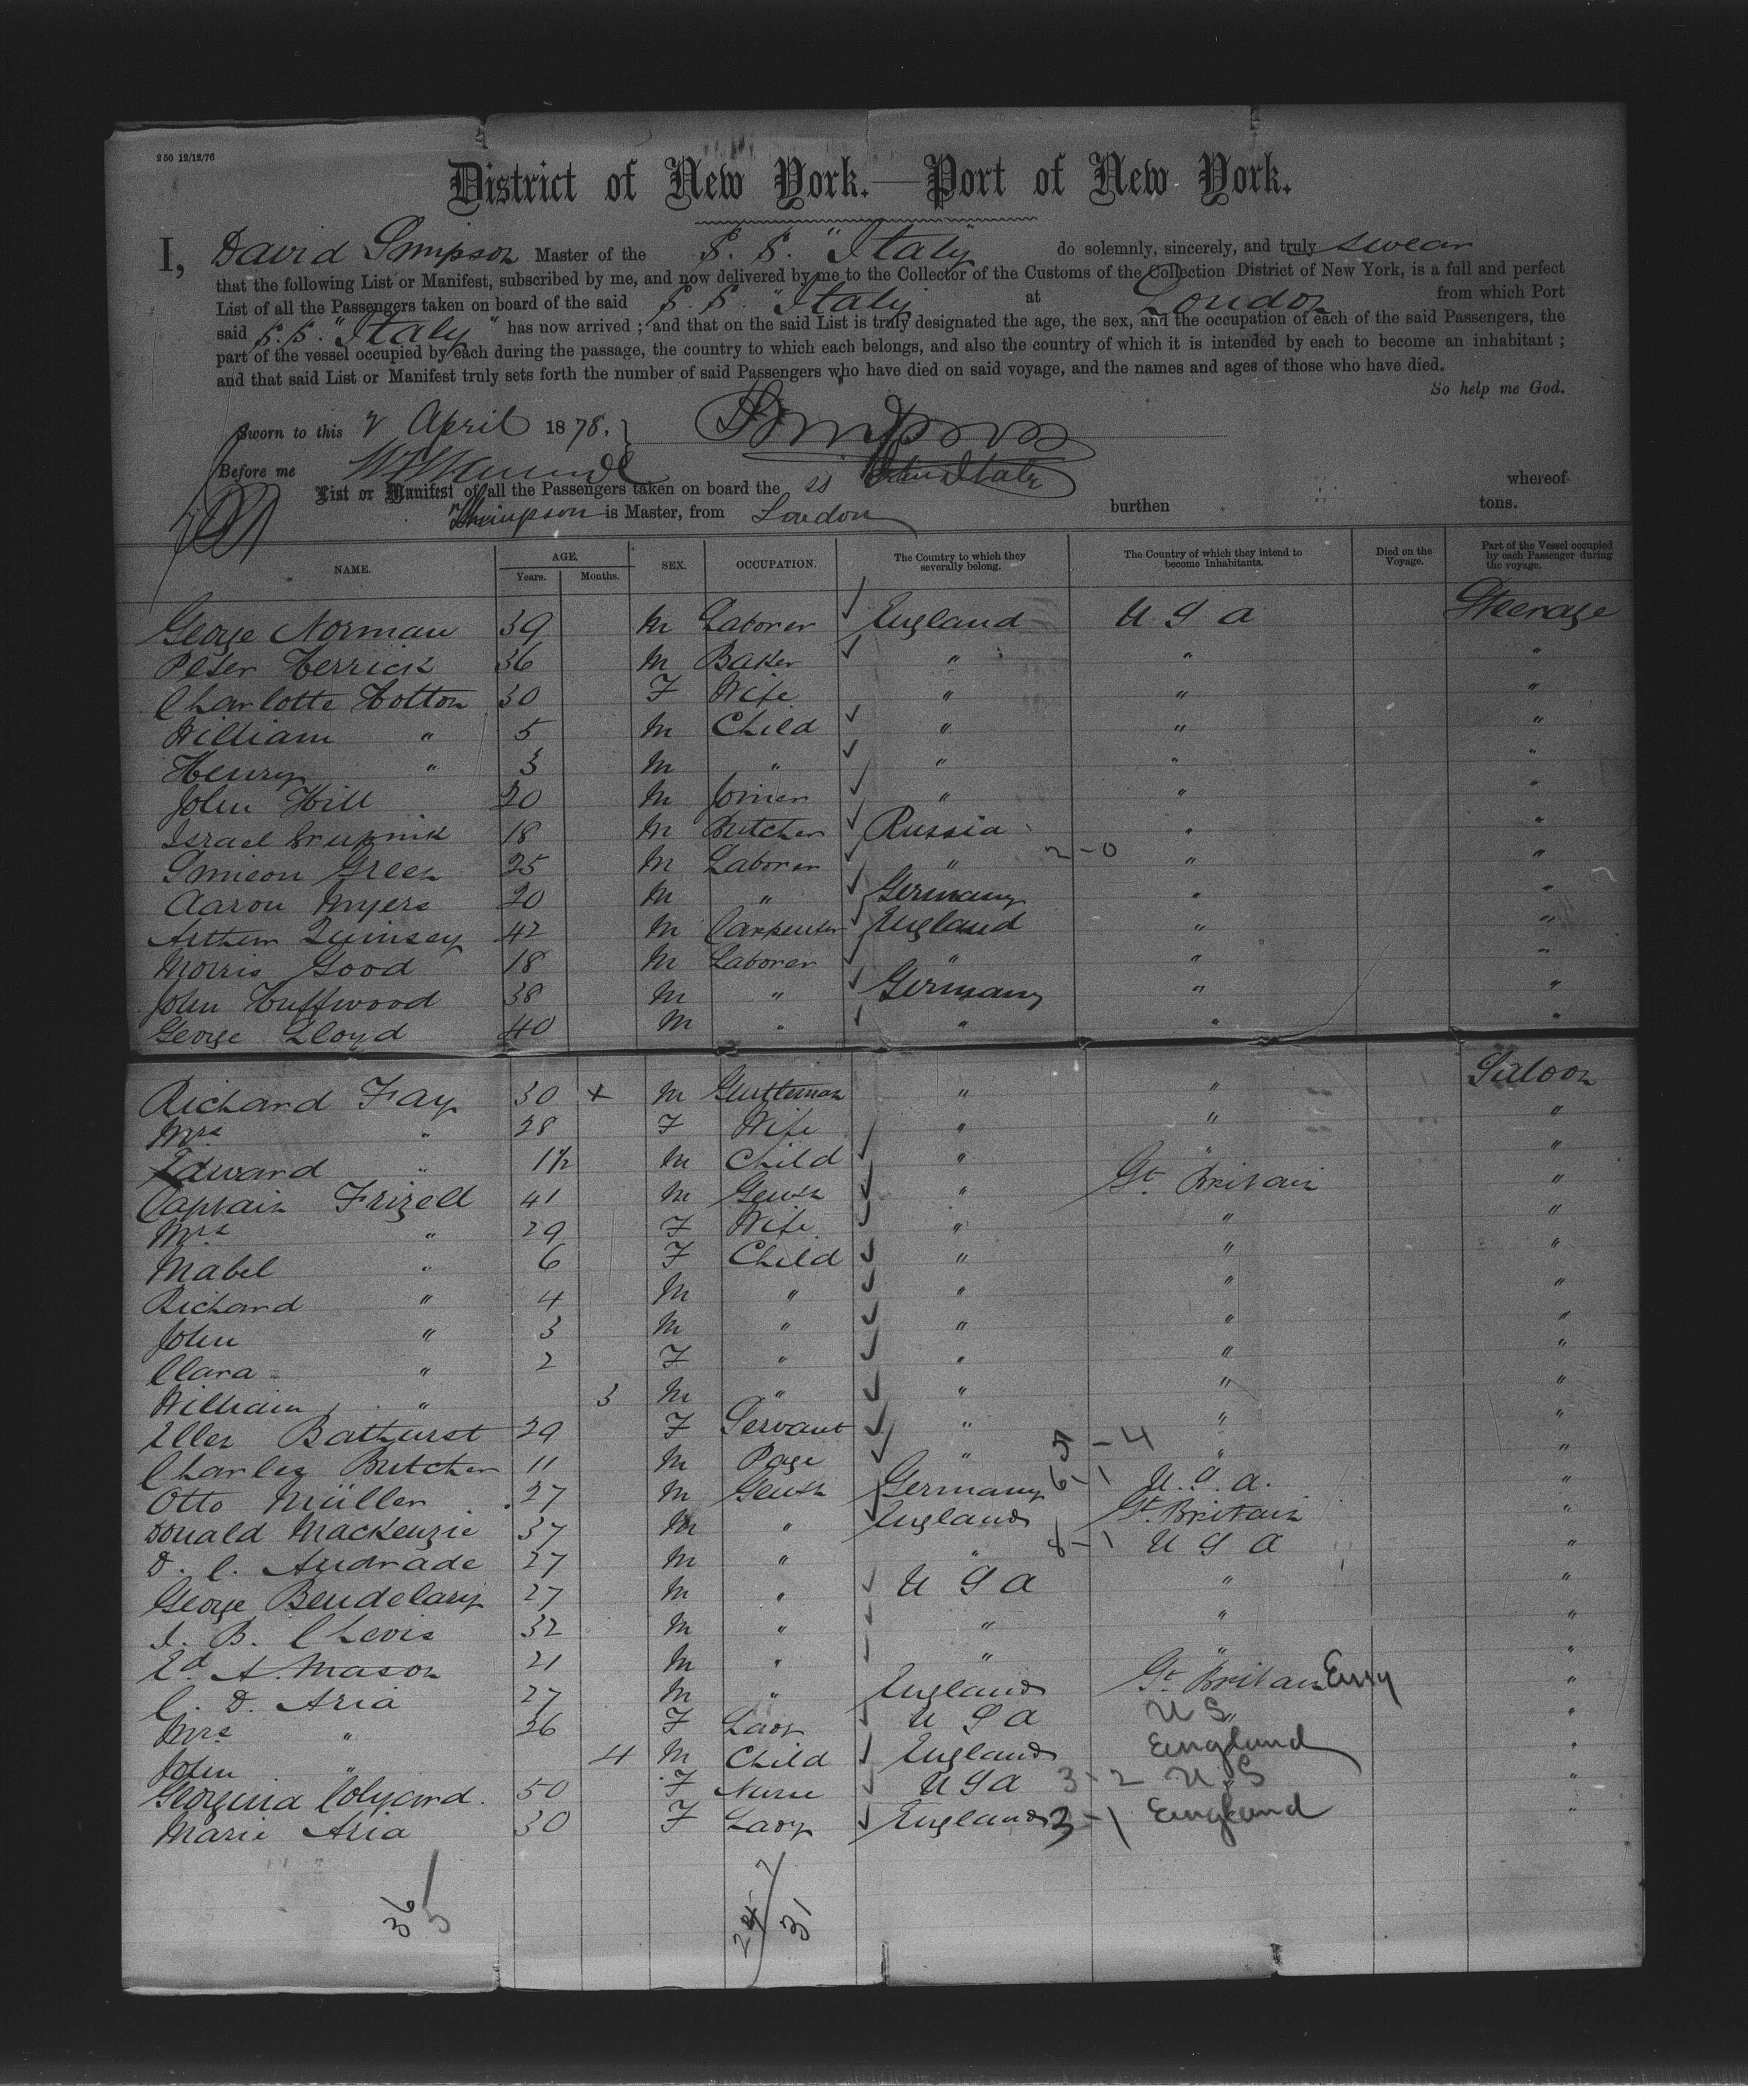 250 12/12/76
District of New York.—Port of New York.
I, David Simpson Master of the S. S. "Italy" do solemnly, sincerely, and truly swear
that the following List or Manifest, subscribed by me, and now delivered by me to the Collector of the Customs of the Collection District of New York, is a full and perfect
List of all the Passengers taken on board of the said S. S. "Italy" at London from which Port
said S.S. "Italy" has now arrived ; and that on the said List is truly designated the age, the sex, and the occupation of each of the said Passengers, the
part of the vessel occupied by each during the passage, the country to which each belongs, and also the country of which it is intended by each to become an inhabitant ;
and that said List or Manifest truly sets forth the number of said Passengers who have died on said voyage, and the names and ages of those who have died.
So help me God.
Sworn to this 2 April 1878. } DSimpson
Before me
List or Manifest of all the Passengers taken on board the ss Italy whereof
Simpson is Master, from London burthen tons.
NAME. AGE. Years. Months. SEX. OCCUPATION. The Country to which they severally belong. The Country of which they intend to become Inhabitants. Died on the Voyage. Part of the Vessel occupied by each Passenger during the voyage.
George Norman 39 M Laborer England U S A Steerage
Peter Herrick 36 M Baker " " "
Charlotte Hotton 30 F Wife " " "
William " 5 M Child " " "
Henry " 3 M " " " "
John Hill 20 M Joiner " " "
Israel Crupnik 18 M Butcher Russia " "
Simeon Green 25 M Laborer " 2-0 " "
Aaron Myers 20 M " Germany " "
Arthur Quinsey 42 M Carpenter England " "
Morris Good 18 M Laborer " " "
John Huffwood 38 M " Germany " "
George Lloyd 40 M " " " "
Richard Fay 30 + M Gentleman " " Saloon
Mrs " 28 F Wife " " "
Edward " 1½ M Child " " "
Captain Frizell 41 M Gentn " Gt. Britain "
Mrs " 29 F Wife " " "
Mabel " 6 F Child " " "
Richard " 4 M " " " "
John " 3 M " " " "
Clara " 2 F " " " "
William " 3 M " " " "
Ellen Bathurst 29 F Servant " " "
Charles Butcher 11 M Page " 5-4 " "
Otto Müller 27 M Gentn Germany 6-1 U.S.A. "
Donald Mackenzie 37 M " England Gt. Britain "
D. C. Andrade 27 M " " 8-1 U S A "
George Bendelary 27 M " U S A " "
I. B. Chevis 32 M " " " "
Ed. A. Mason 21 M " " " "
C. D. Aria 27 M " England Gt. Britain Eng "
Mrs " 26 F Lady U S A " U S "
John " 4 M Child England England "
Georgina Colyard. 50 F Nurse U S A 3-2 U S "
Marie Aria 30 F Lady England 3-1 England "
36 5 24 / 7 31